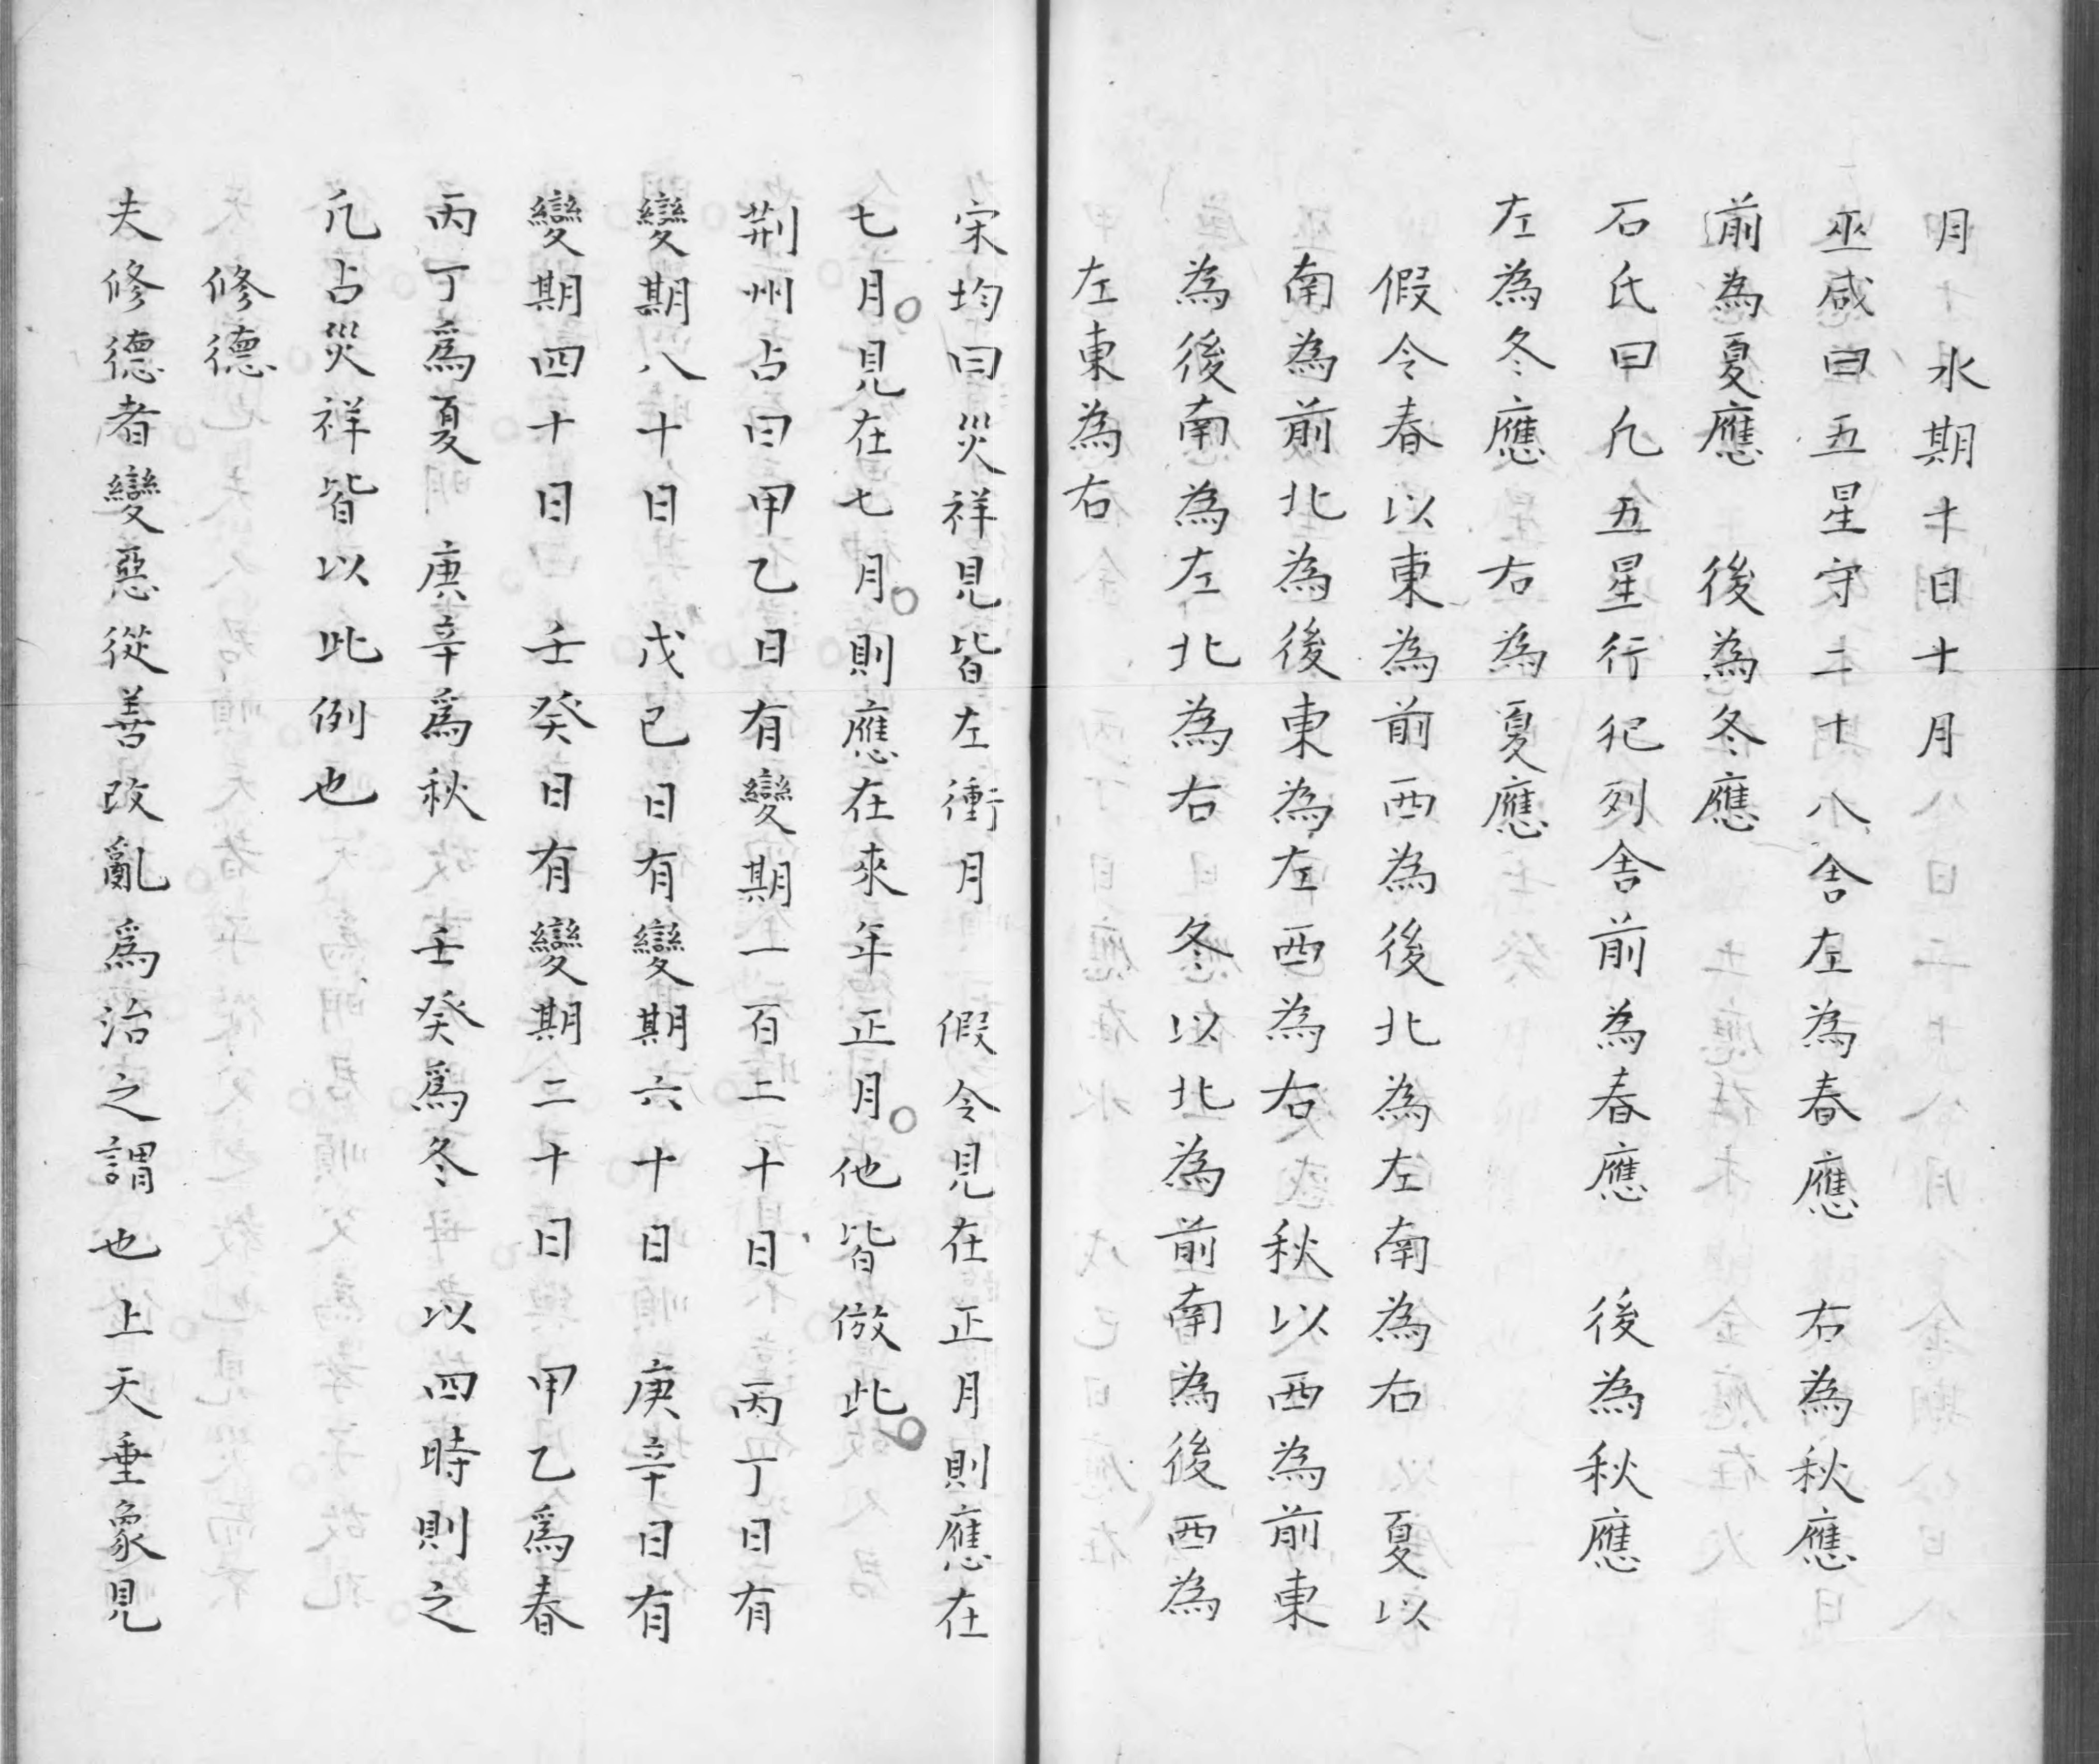 月　水期十日十月
巫咸曰五星守二十八舍左為春應　右為秋應
前為夏應　後為冬應
石氏曰凢五星行犯列舍前為春應　後為秋應
左為冬應　右為夏應
假令春以東為前西為後北為左南為右　夏以
南為前北為後東為左西為右　秋以西為前東
為後南為左北為右　冬以北為前南為後西為
左東為右
宋均曰災祥見皆左衝月　假令見在正月則應在
七月見在七月則應在來年正月他皆倣此
荆州占曰甲乙日有變期一百二十日　丙丁日有
變期八十日　戊己日有變期六十日　庚辛日有
變期四十日　壬癸日有變期二十日　甲乙爲春
丙丁爲夏　庚辛爲秋　壬癸爲冬　以四時則之
凢占災祥皆以此例也
修德
夫修德者變惡從善改亂爲治之謂也上天垂象見